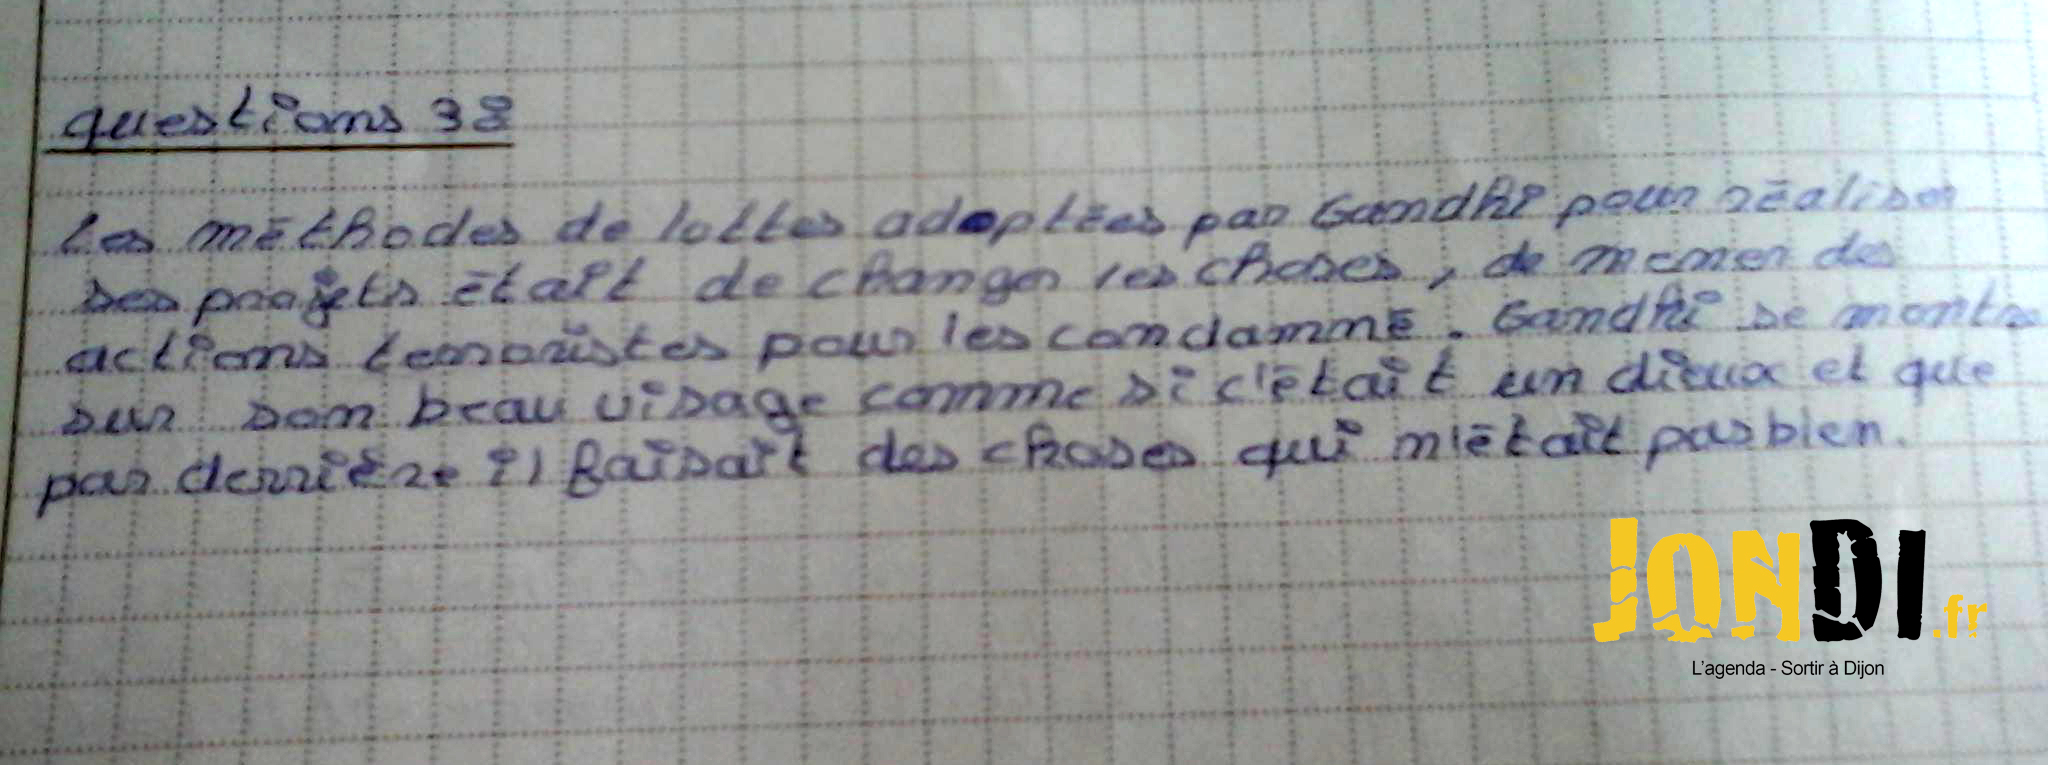 questions 38
Les méthodes de lottes adoptées par Gandhi pour réaliser
ses projets était de changer les choses, de mener des
actions terroristes pour les condamné. Gandhi se montre
sur son beau visage comme si c'était un dieux et que
par derrière il faisait des choses qui n'était pas bien.
JONDI.fr
L'agenda - Sortir à Dijon